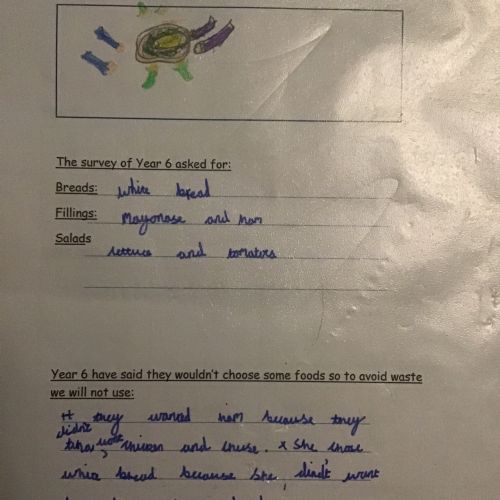 The survey of Year 6 asked for:
Breads: white bread
Fillings: Mayonase and ham
Salads
lettuce and tomatos
Year 6 have said they wouldn't choose some foods so to avoid waste
we will not use:
they wanted ham because they
didn't
chicken and . x She chose
white bread because she didn't want